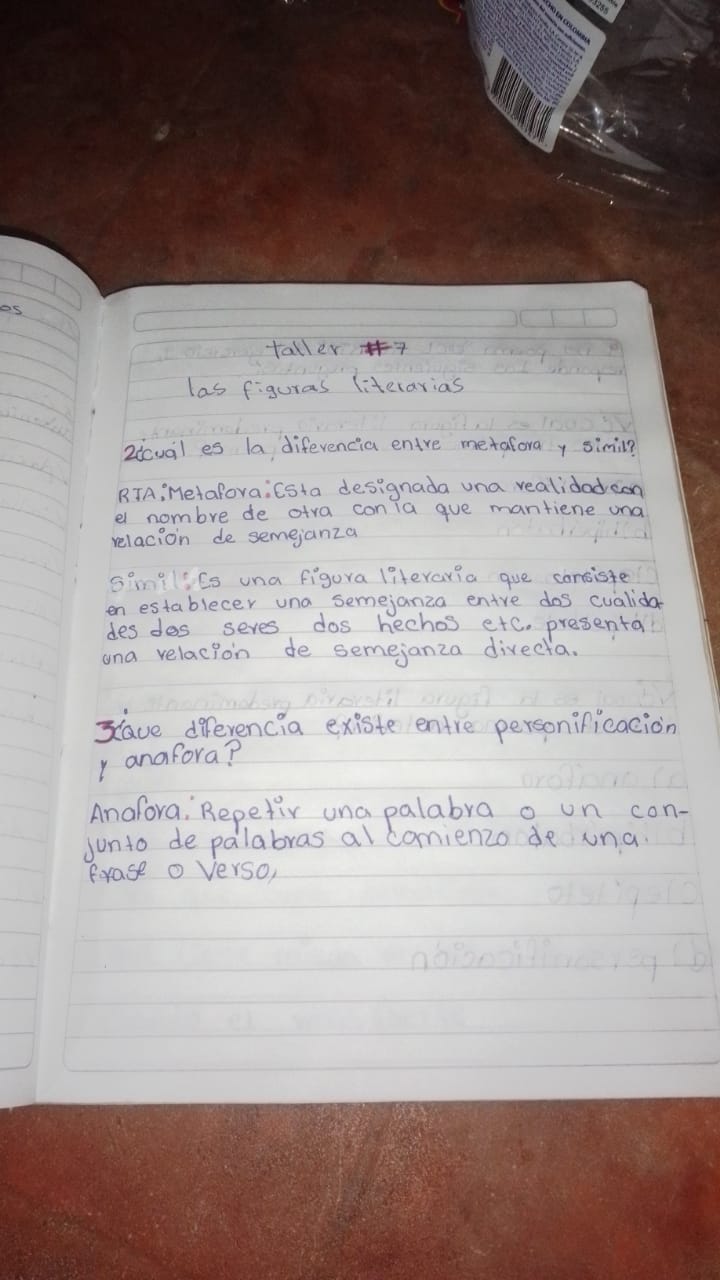 HO EN COLOMBIA
os
taller #7
las figuras literarias
2¿cuál es la diferencia entre metafora y simil?
RTA: Metafora: Esta designada una realidad con
el nombre de otra con la que mantiene una
relación de semejanza
Simil: Es una figura literaria que consiste
en establecer una semejanza entre dos cualida
des dos seres dos hechos etc. presenta
una relación de semejanza directa.
3¿Que diferencia existe entre personificación
y anafora?
Anafora: Repetir una palabra o un con-
junto de palabras al comienzo de una
frase o verso,